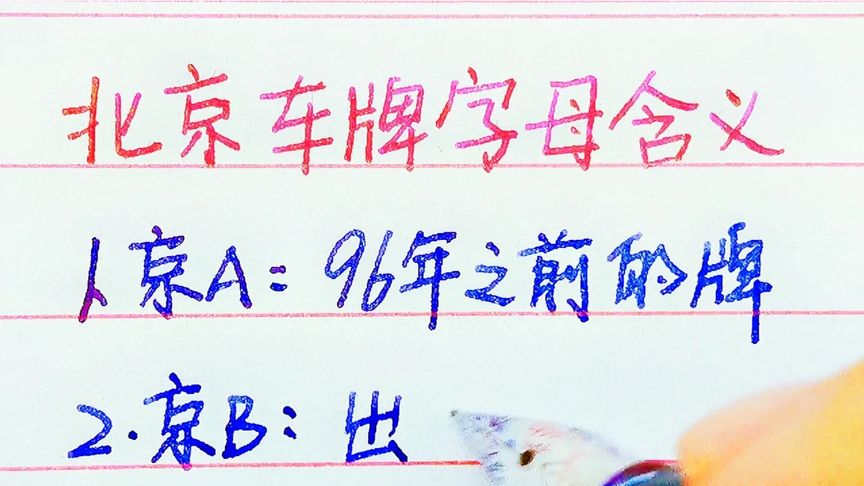 北京车牌字母含义
1、京A：96年之前的牌
2.京B：出